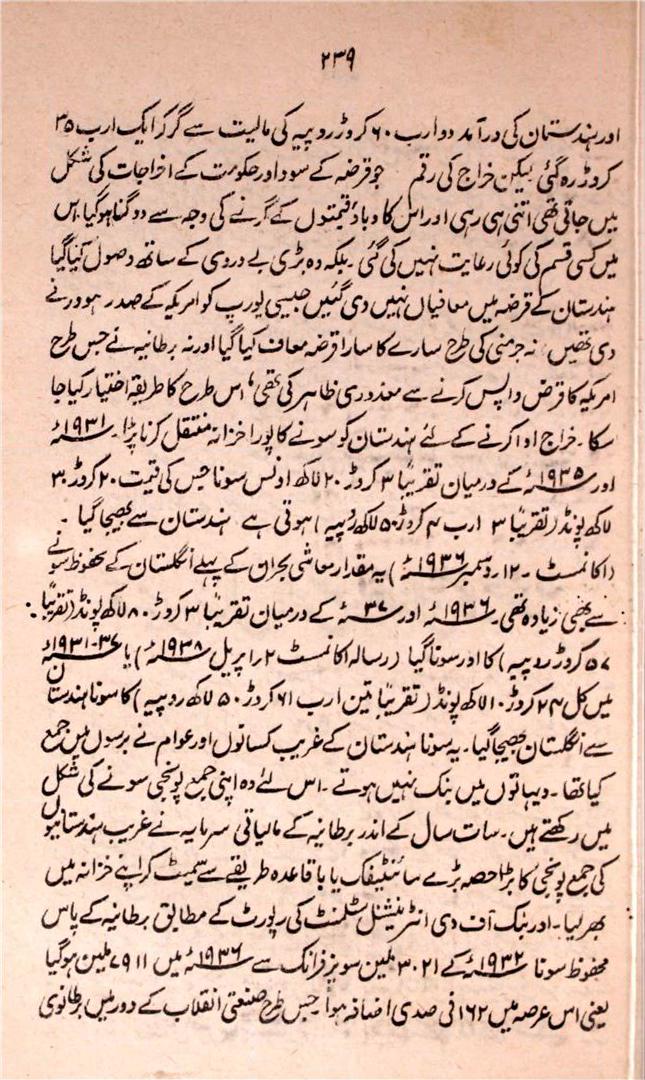 ۲۳۹
اور ہندستان کی درآمد دو ارب ۶۰ کروڑ روپیہ کی مالیت سے گر کر ایک ارب ۳۵
کروڑ رہ گئی لیکن خراج کی رقم جو قرضہ کے سود اور حکومت کے اخراجات کی شکل
میں جاتی تھی اتنی ہی رہی اور اس کا دباؤ قیمتوں کے گرنے کی وجہ سے دو گنا ہو گیا۔ اس
میں کسی قسم کی کوئی رعایت نہیں کی گئی۔ بلکہ وہ بڑی بے دردی کے ساتھ وصول کیا گیا
ہندستان کے قرضہ میں معافیاں نہیں دی گئیں جیسی یورپ کو امریکہ کے صدر ہوور نے
دی تھیں نہ جرمنی کی طرح سارے کا سارا قرضہ معاف کیا گیا اور نہ برطانیہ نے جس طرح
امریکہ کا قرض واپس کرنے سے معذوری ظاہر کی تھی، اس طرح کا طریقہ اختیار کیا جا
سکا۔ خراج ادا کرنے کے لئے ہندستان کو سونے کا پورا خزانہ منتقل کرنا پڑا۔ ۱۹۳۱ء
اور ۱۹۳۵ء کے درمیان تقریباً ۳ کروڑ ۲۰ لاکھ اونس سونا جس کی قیمت ۲۰ کروڑ ۳۰
لاکھ پونڈ (تقریباً ۳ ارب ۴ کروڑ ۵۰ لاکھ روپیہ) ہوتی ہے ہندستان سے بھیجا گیا۔
(اکانمسٹ۔ ۱۲ دسمبر ۱۹۳۶ء) یہ مقدار معاشی بحران کے پہلے انگلستان کے محفوظ سونے
سے بھی زیادہ تھی۔ ۱۹۳۶ء اور ۳۷ء کے درمیان تقریباً ۳ کروڑ ۸۰ لاکھ پونڈ (تقریباً
۵۷ کروڑ روپیہ) کا اور سونا گیا (رسالہ اکانمسٹ ۲ اپریل ۱۹۳۸ء) یا ۳۷-۱۹۳۱ء
میں کل ۲۴ کروڑ ۱۰ لاکھ پونڈ (تقریباً تین ارب ۶۱ کروڑ ۵۰ لاکھ روپیہ) کا سونا ہندستان
سے انگلستان بھیجا گیا۔ یہ سونا ہندستان کے غریب کسانوں اور عوام نے برسوں میں جمع
کیا تھا۔ دیہاتوں میں بنک نہیں ہوتے۔ اس لئے وہ اپنی جمع پونجی سونے کی شکل
میں رکھتے ہیں۔ سات سال کے اندر برطانیہ کے مالیاتی سرمایہ نے غریب ہندستانیوں
کی جمع پونجی کا بڑا حصہ بڑے سائنٹیفک یا باقاعدہ طریقے سے سمیٹ کر اپنے خزانہ میں
بھر لیا۔ اور بنک آف دی انٹرنیشنل سٹلمنٹ کی رپورٹ کے مطابق برطانیہ کے پاس
محفوظ سونا ۱۹۳۲ء کے ۳۰۲۱ ملین سویز فرانک سے ۱۹۳۶ء میں ۷۹۱۱ ملین ہو گیا
یعنی اس عرصہ میں ۱۶۲ فی صدی اضافہ ہوا۔ جس طرح صنعتی انقلاب کے دور میں برطانوی